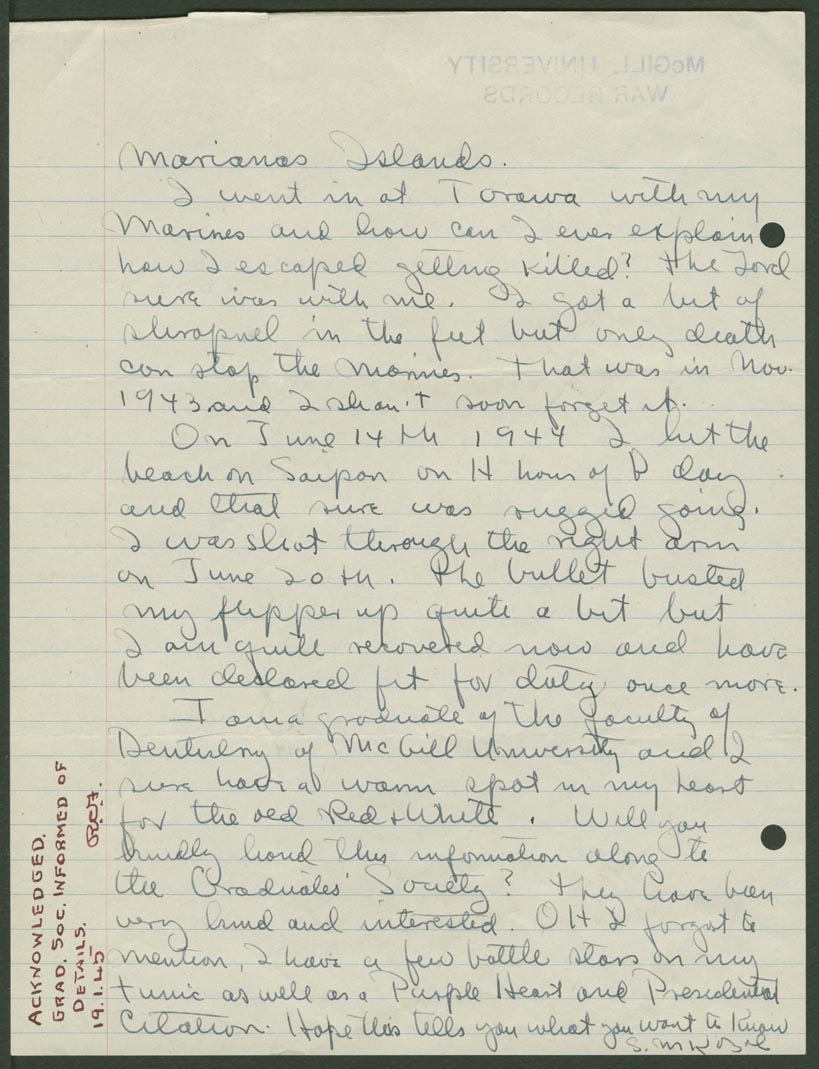 McGILL UNIVERSITY
WAR RECORDS
Marianas Islands.
I went in at Tarawa with my
Marines and how can I ever explain
how I escaped getting killed? The Lord
sure was with me. I got a bit of
shrapnel in the feet but only death
can stop the Marines. That was in Nov.
1943 and I shan't soon forget it.
On June 14th 1944 I hit the
beach on Saipan on H hour of D day
and that sure was rugged going.
I was shot through the right arm
on June 20th. The bullet busted
my flipper up quite a bit but
I am quite recovered now and have
been declared fit for duty once more.
I am a graduate of the faculty of
Dentistry of McGill University and I
sure have a warm spot in my heart
for the old Red & White. Will you
kindly hand this information along to
the Graduates' Society? They have been
very kind and interested. OH I forgot to
mention, I have a few battle stars on my
tunic as well as a Purple Heart and Presidential
Citation. Hope this tells you what you want to know
ACKNOWLEDGED.
GRAD. SOC. INFORMED OF
DETAILS.
19.1.45